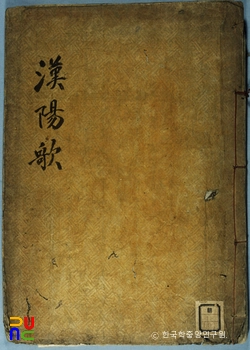 漢陽歌
© 한국학중앙연구원